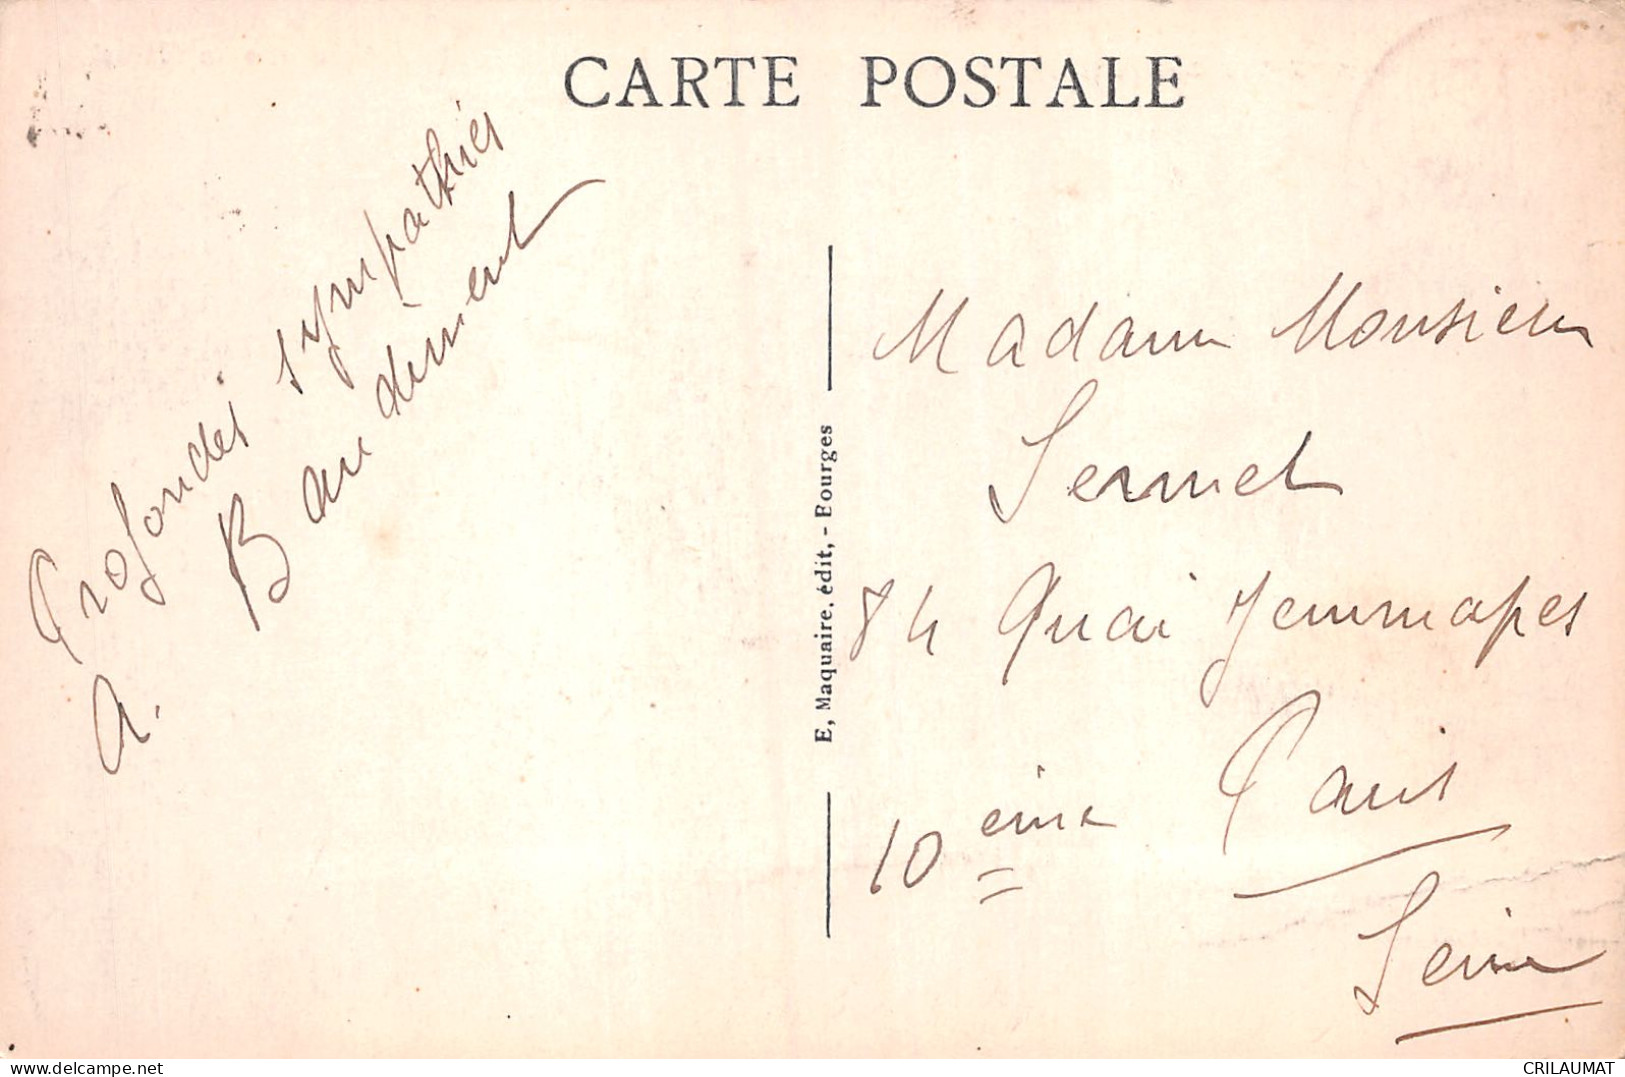 CARTE POSTALE
Profondes sympathies
A. Baudiment
E, Maquaire, édit, - Bourges
Madame Monsieur
Sermet
84 Quai Jemmapes
Paris
10 ème
Seine
delcampe.net
CRILAUMAT